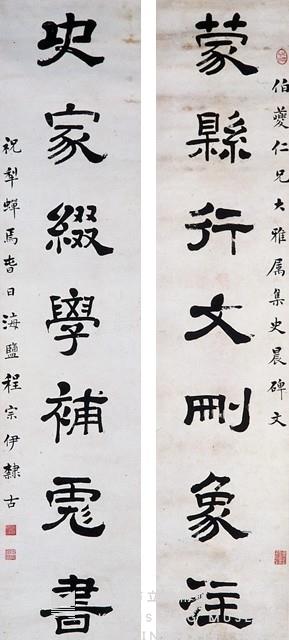 伯夔仁兄大雅属集史晨碑文
蒙縣行文刪象注
史家綴學補彪書
祝犁蟬焉旾日海鹽程宗伊隸古